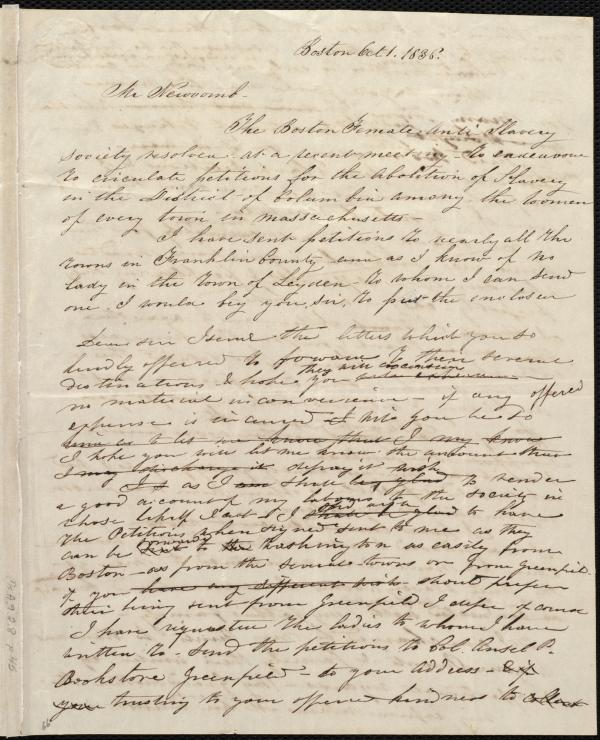 Boston Oct 1. 1836.
Mr Newcomb -
The Boston Female Anti Slavery
Society resolved at a recent meeting - to endeavour
to circulate petitions for the abolition of Slavery
in the District of Columbia among the women
of every town in Massachusetts -
I have sent petitions to nearly all the
towns in Franklin County and as I know of no
lady in the town of Leyden to whom I can send
one. I would beg you, Sir, to put the enclosed
Dear Sir I send the letters which you so
kindly offered to forward to their several
destinations & hope they will occasion
you
no material inconvenience - if any offered
expense is incurred I will you be so
kind as to let me know that I may know
I hope you will let me know the amount that
I may discharge it defray it
I as I am shall be glad to render
a good account of my labours to the society in
whose behalf I act & I should be glad to have
the Petitions when signed sent to me as they
can be sent forwarded to Washington as easily from
Boston - as from the several towns or from Greenfield.
if you have any different wish - should prefer
their being sent from Greenfield I defer of course
I have requested the ladies to whom I have
written to - send the petitions to Col. Ansel P.
Bookstore Greenfield - to your address - &
your trusting to your offered kindness to collect